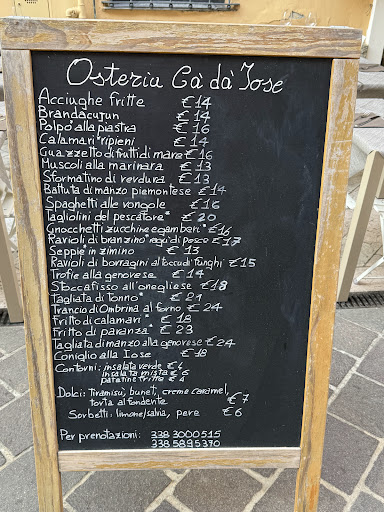 Osteria Cà dà Iose
Acciughe fritte € 14
Brandacujun € 14
Polpo* alla piastra € 16
Calamari* ripieni € 14
Guazzetto di frutti di mare € 16
Muscoli alla marinara € 13
Sformatino di verdura € 13
Battuta di manzo piemontese € 14
Spaghetti alle vongole € 16
Tagliolini del pescatore* € 20
Gnocchetti zucchine e gamberi* € 16
Ravioli di branzino* ragù di pesce € 17
Seppie* in zimino € 15
Ravioli di borragini al tocco di funghi € 15
Trofie alla genovese € 14
Stoccafisso all'onegliese € 18
Tagliata di Tonno* € 21
Trancio di Ombrina al forno € 24
Fritto di calamari* € 18
Fritto di paranza* € 23
Tagliata di manzo alla genovese € 24
Coniglio alla Iose € 18
Contorni: insalata verde € 4
insalata mista € 6
patatine fritte € 4
Dolci: Tiramisù, bunet, creme caramel,
torta al fondente € 7
Sorbetti: limone/salvia, pera € 6
Per prenotazioni: 338 3000515
338 5895370